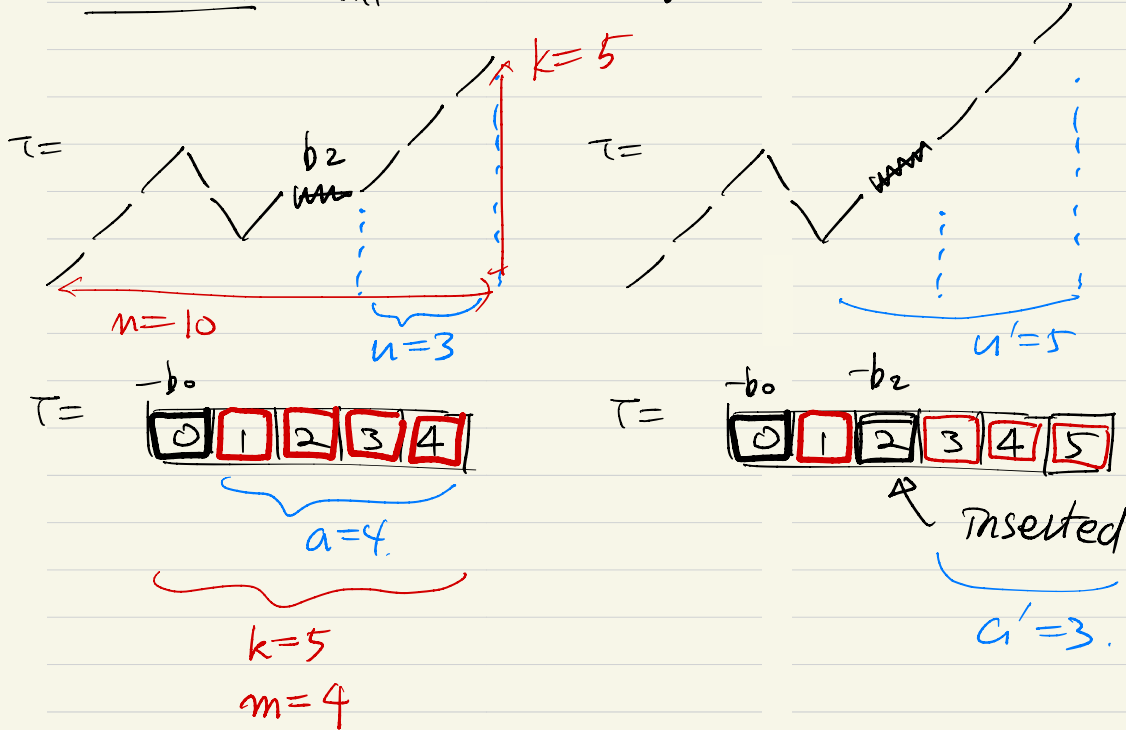 k=5
τ=
b2
τ=
n=10
u=3
u'=5
-b0
τ=
0 1 2 3 4
-b0
-b2
τ=
0 1 2 3 4 5
a=4.
inserted
k=5
a'=3.
m=4